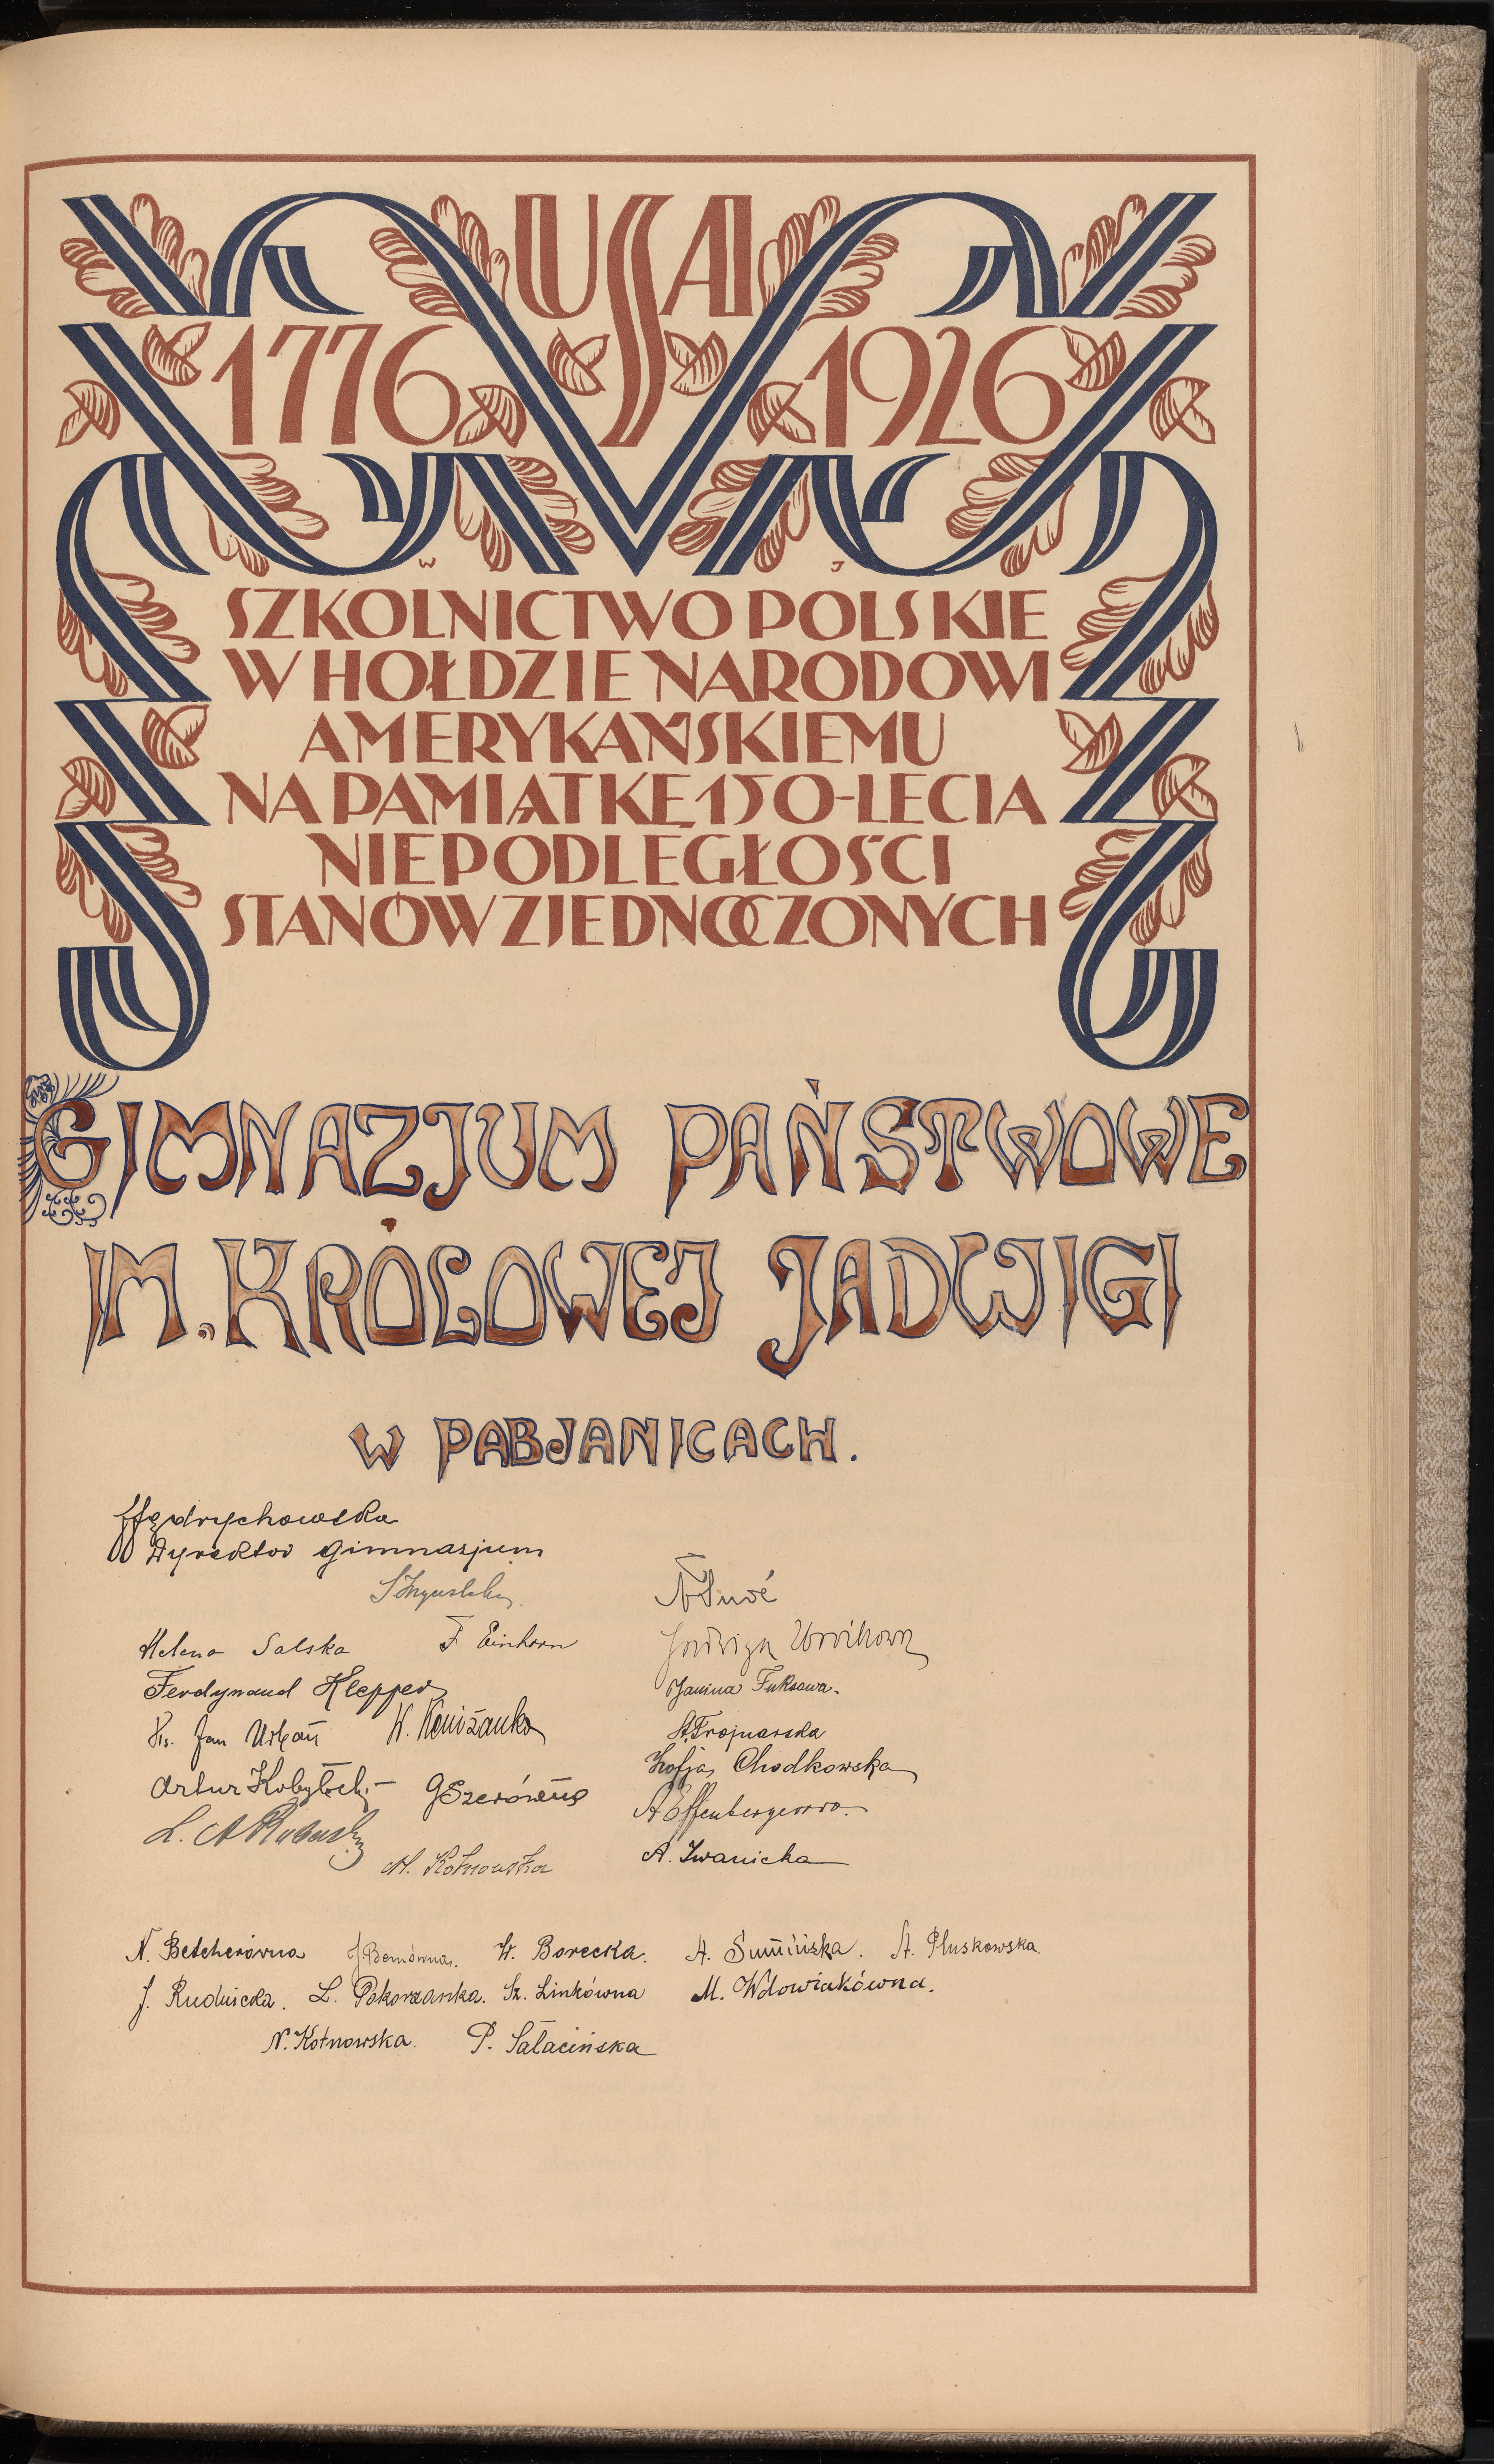 USA
1776 1926
W J
SZKOLNICTWO POLSKIE
W HOŁDZIE NARODOWI
AMERYKAŃSKIEMU
NA PAMIĄTKĘ 150-LECIA
NIEPODLEGŁOŚCI
STANÓW ZJEDNOCZONYCH
GIMNAZJUM PAŃSTWOWE
IM. KRÓLOWEJ JADWIGI
W PABJANICACH.
Jędrychowska
Dyrektor gimnazjum
Helena Salska F. Einhorn
Ferdynand Klepper
Ks. Jan Urban W. Koniżanka
Artur Kobyłecki
M. Kotnowska
Jadwiga
Janina Fuksowa.
Zofja Chodkowska
A. Iwanicka
N. Betcherówna W. Borecka. A. Sumińska. A. Pluskowska.
J. Rudnicka. L. Pokorzanka. Sz. Linkówna M. Wdowiakówna.
N. Kotnowska. P. Sałacińska